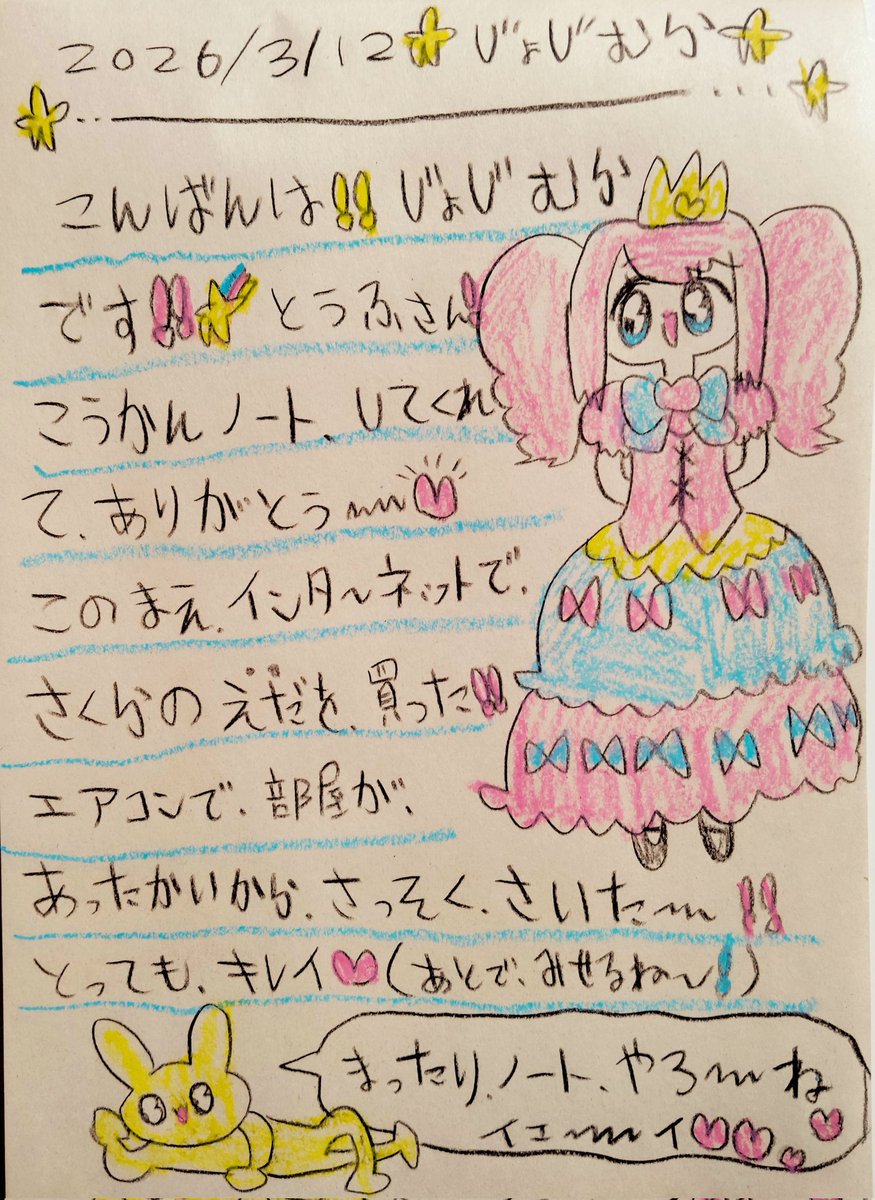 2026/3/12 じょじむか
こんばんは!! じょじむか
です!! とうふさん!
こうかんノート、してくれ
て、ありがとう〜
このまえ、インターネットで、
さくらのえだを、買った!!
エアコンで、部屋が、
あったかいから、さっそく、さいた〜!!
とっても、キレイ(あとで、みせるね〜!)
まったり、ノート、やろ〜ね
イエ〜イ